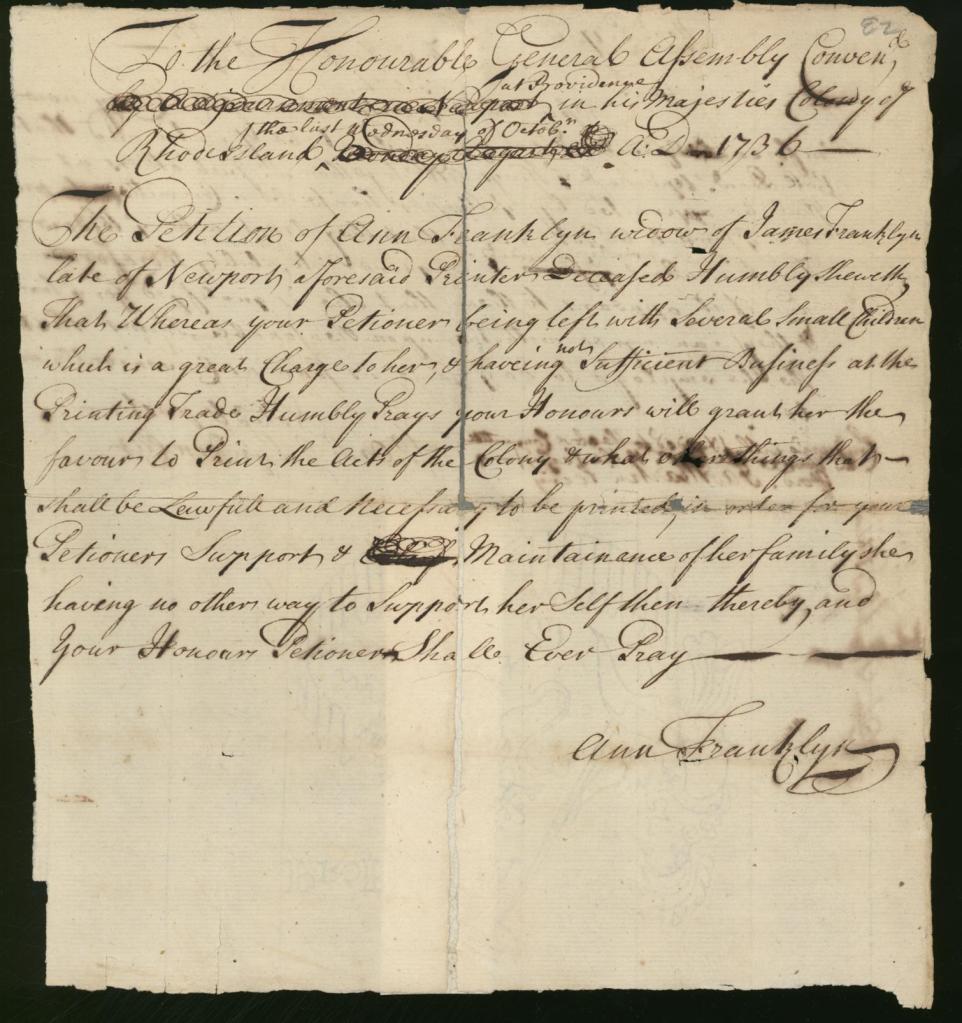 82
To the Honourable General Assembly Conven,d
by Adjournment at Newport at Providence in his Majesties Colony of
the last Wednesday of Octobr
Rhode Island A:D: 1736
The Petition of Ann Franklyn widow of James Franklyn
late of Newport aforesaid Printer Deceased Humbly Sheweth,
That Whereas your Petioner being left with Several Small Children
which is a great Charge to her, & haveing not Sufficient Business at the
Printing Trade Humbly Prays your Honours will grant her the
favour to Print the Acts of the Colony & what other things that
shall be Lawfull and Necessary to be printed, in order for your
Petioners Support & Maintainance of her family she
having no other way to Support her Self then thereby, and
Your Honours Petioner Shall Ever Pray
Ann Franklyn